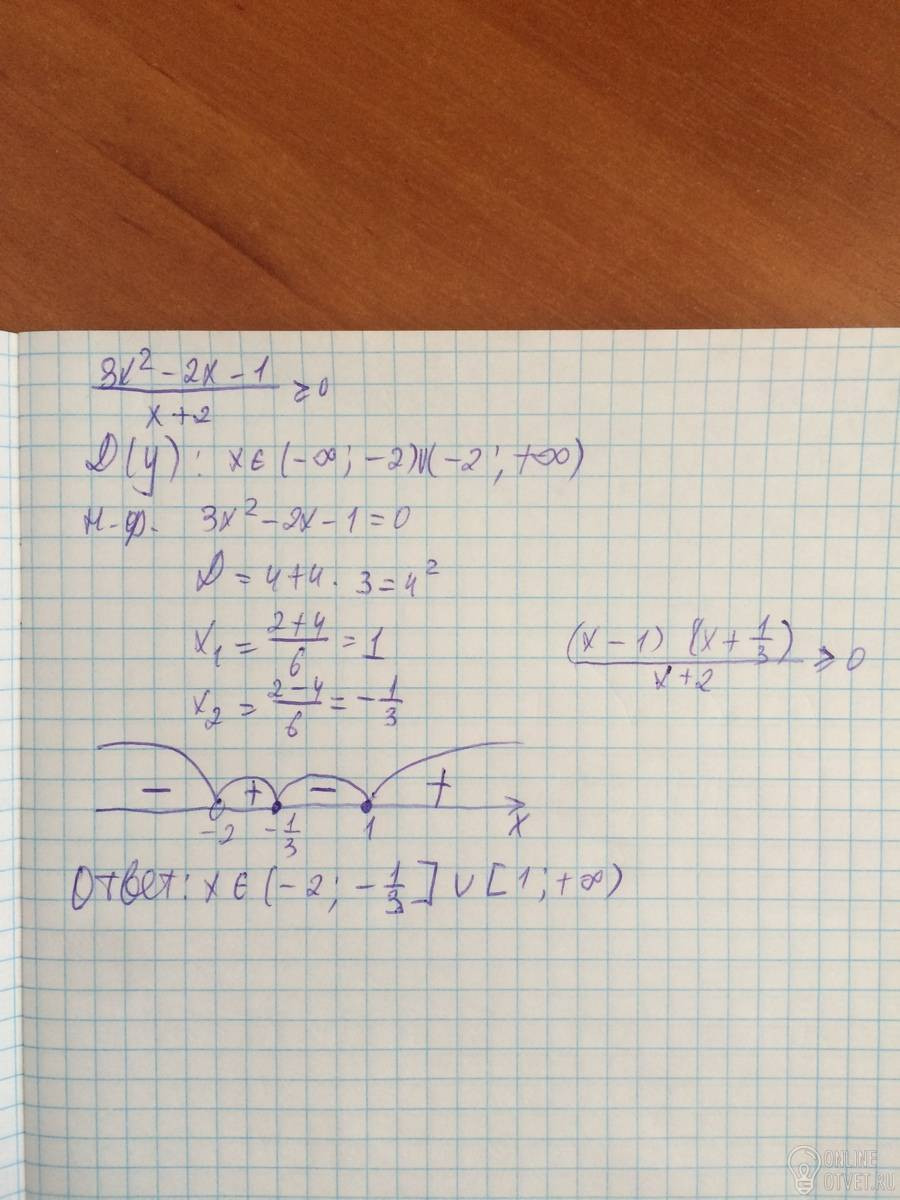 3x² - 2x - 1
x + 2
≥ 0
D(y): x ∈ (-∞; -2) ∪ (-2; +∞)
н-ф. 3x² - 2x - 1 = 0
D = 4 + 4 · 3 = 4²
x₁ = (2+4)/6 = 1
x₂ = (2-4)/6 = -1/3
(x - 1) (x + 1/3)
x + 2
≥ 0
- + - +
-2 -1/3 1 x
Ответ: x ∈ (-2; -1/3] ∪ [1; +∞)
ONLINE
OTVET.RU